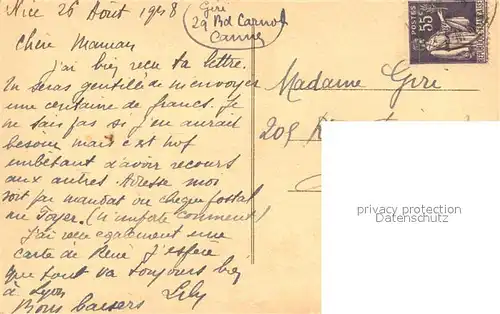 Nice 26 Août 1938
Giri
29 Bd Carnot
Cannes
Chère Maman
J'ai bien reçu ta lettre.
Tu seras gentille de m'envoyer
une centaine de francs. Je
ne sais pas si j'en aurai
besoin mais c'est
embêtant d'avoir recours
aux autres. Adresse moi
soit par mandat ou chèque postal
au Foyer. (N'importe comment)
J'ai reçu également une
carte de René. J'espère
que tout va toujours bien
à Lyon
Bons baisers Lily
POSTES
55c
Madame Giri
privacy protection
Datenschutz